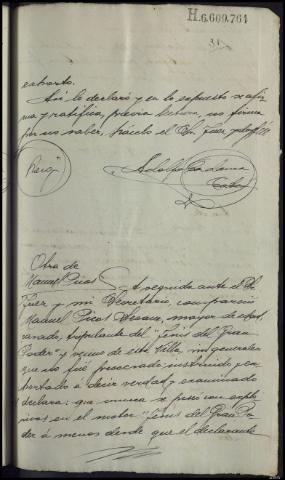 H.6.609.761
31
extracto.
Así lo declaró y en lo expuesto se afir
ma y ratifica, previa lectura, no firma
por no saber, hácelo el Sr. Juez y doy fé
Adolfo
Otra de
Manuel
A seguida ante el Sr.
Juez y mi Secretario, compareció
Manuel mayor de edad
casado, tripulante del "Jesús del Gran
Poder" y vecino de esta Villa, sin generales
que no fué procesado, instruido y ex-
hortado a decir verdad y examinado
declara: que nunca se pescó con explo
sivos en el motor "Jesús del Gran Po
der á menos desde que el declarante